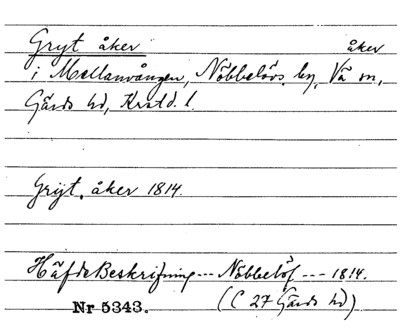 Gryt åker åker
i Mellanvången, Nöbbelövs by, Vä sn,
Gärds hd, Krstd. l.
Gryt, åker 1814.
HäfdeBeskrifning --- Nöbbelöf --- 1814.
Nr 5343. (C 27 Gärds hd)